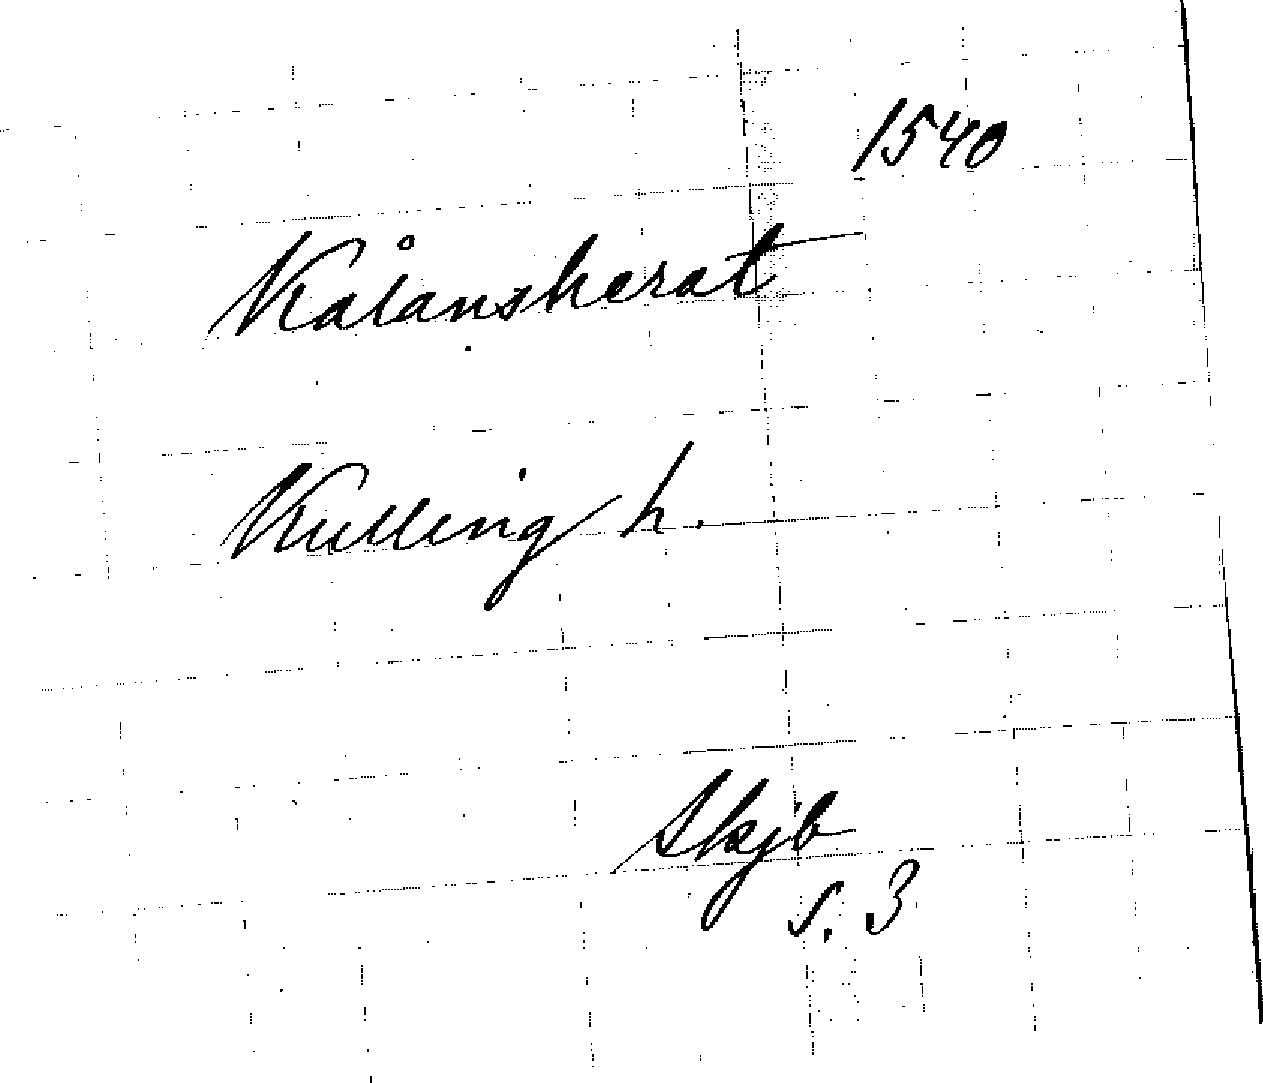 1540
Kålanskerat
Kulling h.
Skjb
s. 3